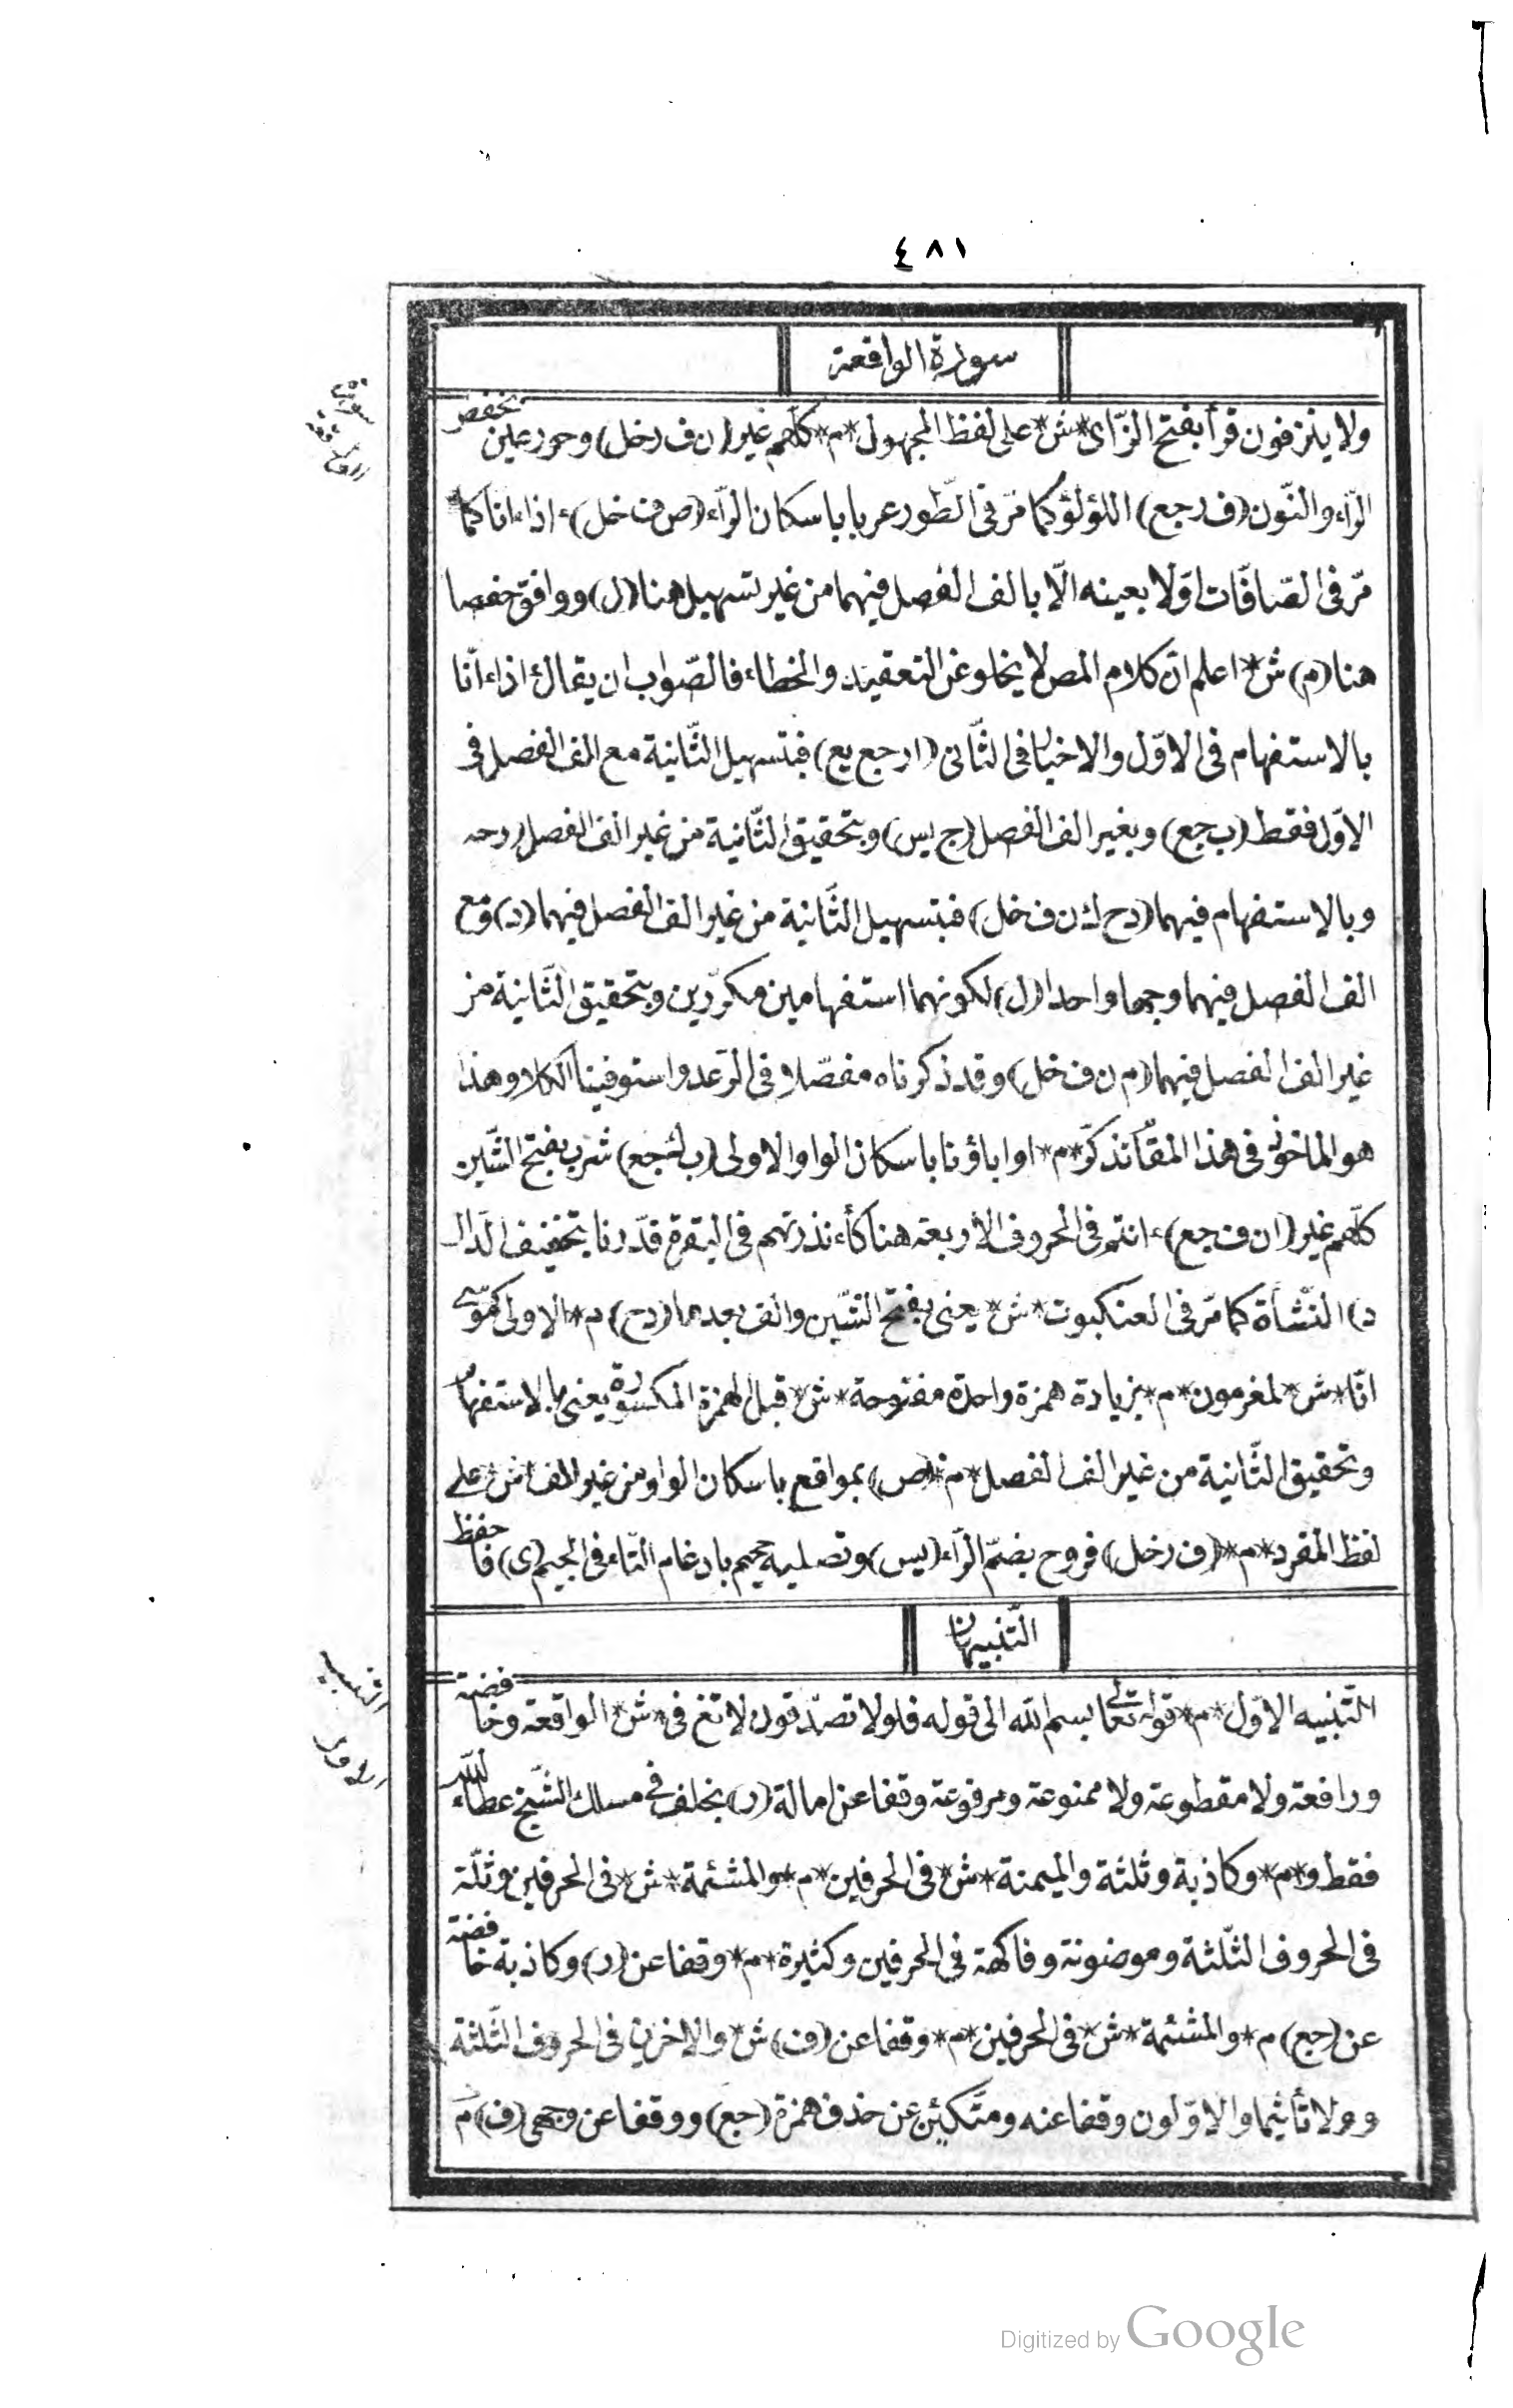 ٤٨١
سورة الواقعة
سورة الواقعة
ولا ينزفون قرأ بفتح الزّاى *ش* على لفظ المجهول *م* كلّهم غير (ن ف رخل) وحور عين بخفض
الرّاء والنّون (ف رجع) اللؤلؤ كما مرّ فى الطّور عربا باسكان الرّاء (ص ف خل) ءاذا ءانا كما
مرّ فى الصّافّات اوّلا بعينه الّا بالف الفصل فيهما من غير تسهيل هنا (ل) ووافق حفصا
هنا (م) ش* اعلم انّ كلام المص لا يخلو عن التعقيد والخطاء فالصّواب ان يقال ءاذا ءانّا
بالاستفهام فى الاوّل والاخبار فى الثّانى (ا رجع يع) فبتسهيل الثّانية مع الف الفصل فى
الاوّل فقط (ب جع) وبغير الف الفصل (ج يس) وبتحقيق الثّانية من غير الف الفصل (رحه
وبالاستفهام فيهما (دح ك ن ف خل) فبتسهيل الثّانية من غير الف الفصل فيهما (د) ومع
الف الفصل فيهما وجها واحدا (ل) لكونهما استفهامين مكرّرين وبتحقيق الثّانية من
غير الف الفصل فيهما (م ن ف خل) وقد ذكرناه مفصّلا فى الرّعد واستوفينا الكلام وهذا
هو الماخوذ فى هذا المقام تذكّر *م* او اباؤنا باسكان الواو الاولى (ب ك جع) شرب بفتح الشّين
كلّهم غير (ا ن ف جع) ءانتم فى الحروف الأربعة هنا كأءنذرتهم فى البقرة قدّرنا بتخفيف الدّال
د) النّشأة كما مرّ فى العنكبوت *ش* يعنى بفتح الشّين والف بعدها (دح) م* الاولى كموسى
انّا *ش* لمغرمون *م* بزيادة همزة واحدة مفتوحة *ش* قبل الهمزة المكسورة يعنى بالاستفهام
وتحقيق الثّانية من غير الف الفصل *م* (ص) بمواقع باسكان الواو من غير الف *ش* على
لفظ المفرد *م* (ف رخل) فروح بضمّ الرّاء (يس) وتصلية جحيم بادغام التاء فى الجيم (ى) فاحفظ
التّنبيهان
التنبيه الاول
التّنبيه الاوّل *م* قوله تعالى بسم الله الى قوله فلولا تصدّقون لا تغ فى *ش* الواقعة وخافضة
ورافعة ولا مقطوعة ولا ممنوعة ومرفوعة وقفا عن امالة (ر) بخلف فى مسلك الشّيخ عطاء الله
فقط و *م* وكاذبة وثلثة والميمنة *ش* فى الحرفين *م* والمشئمة *ش* فى الحرفين وثلّة
فى الحروف الثّلثة وموضونة وفاكهة فى الحرفين وكثيرة *م* وقفا عن (ر) وكاذبة خافضة
عن (جع) م* والمشئمة *ش* فى الحرفين *م* وقفا عن (ف) ش* والاخرين فى الحروف الثّلثة
و ولا تأثيما والاوّلون وقفا عنه ومتّكئين عن حذف همزة (جع) ووقفا عن وجهى (ف) م
Digitized by Google